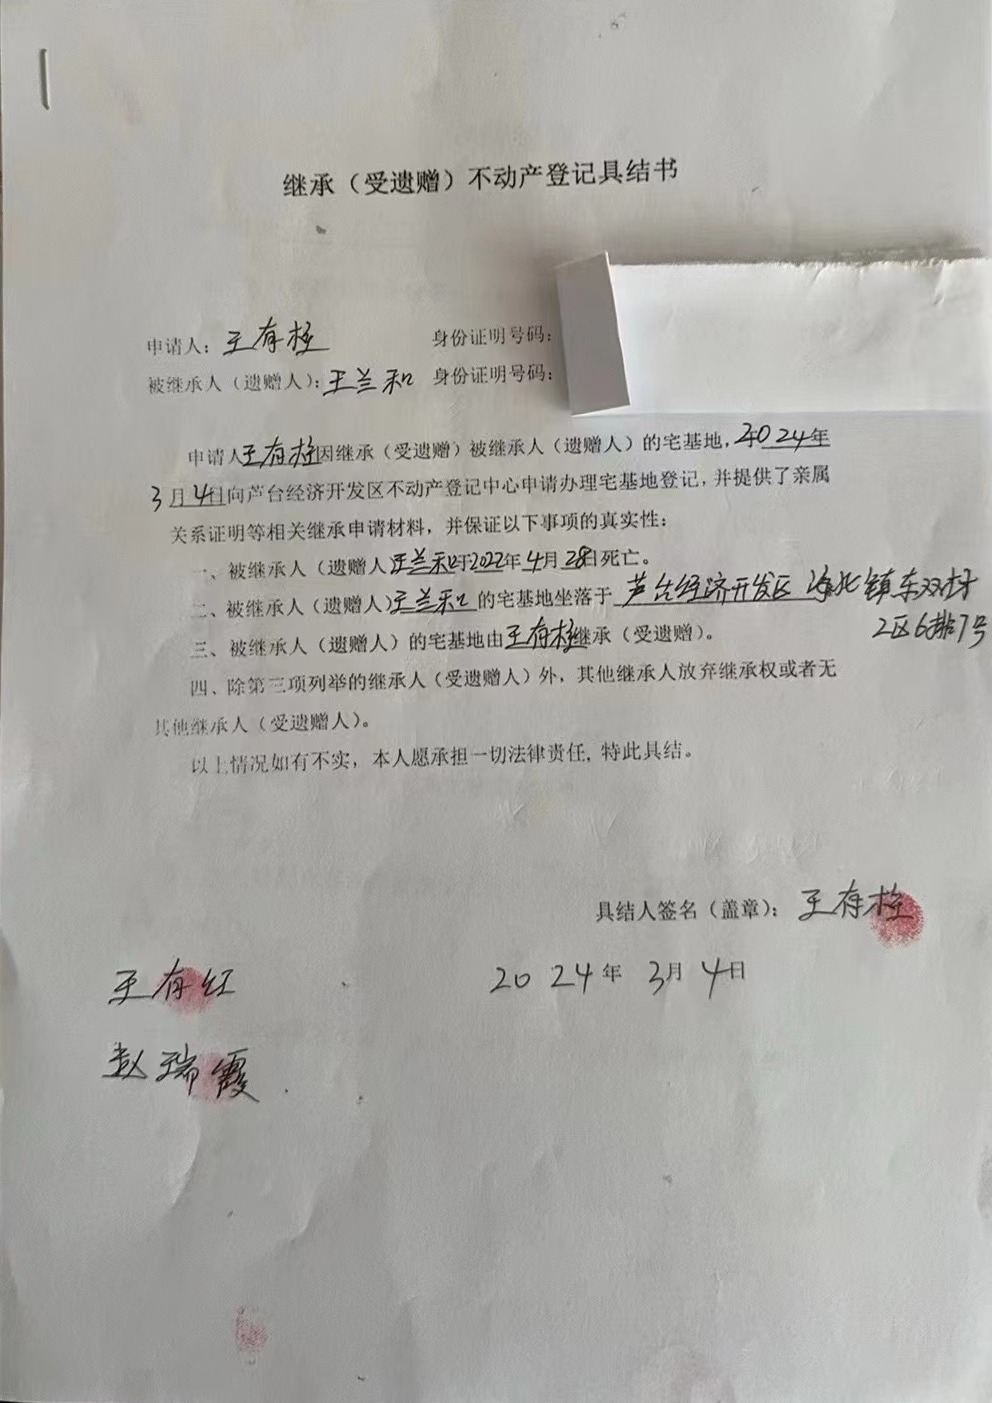 继承（受遗赠）不动产登记具结书
申请人：王存栓 身份证明号码：
被继承人（遗赠人）：王兰和 身份证明号码：
申请人王存栓因继承（受遗赠）被继承人（遗赠人）的宅基地，2024年
3月4日向芦台经济开发区不动产登记中心申请办理宅基地登记，并提供了亲属
关系证明等相关继承申请材料，并保证以下事项的真实性：
一、被继承人（遗赠人）王兰和于2022年4月28日死亡。
二、被继承人（遗赠人）王兰和的宅基地坐落于芦台经济开发区海北镇东双村
2区6排7号
三、被继承人（遗赠人）的宅基地由王存栓继承（受遗赠）。
四、除第三项列举的继承人（受遗赠人）外，其他继承人放弃继承权或者无
其他继承人（受遗赠人）。
以上情况如有不实，本人愿承担一切法律责任，特此具结。
具结人签名（盖章）：王存栓
2024年3月4日
王存红
赵瑞霞